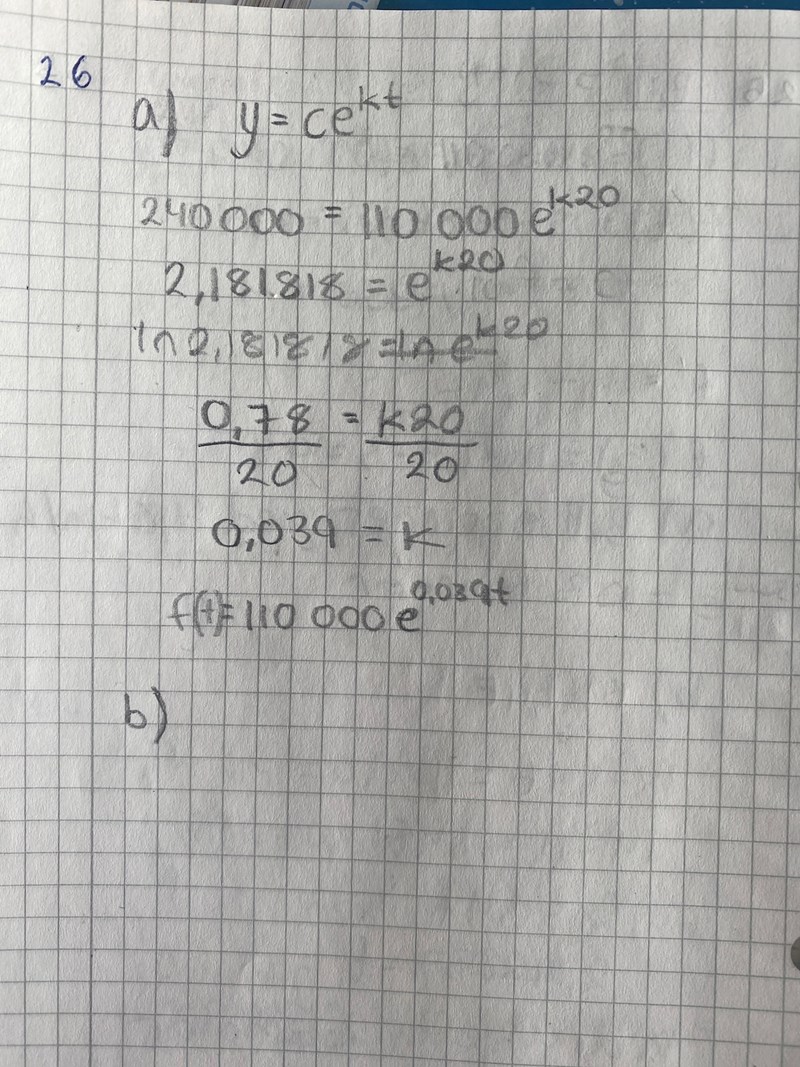 26
a) y = ce^kt
240 000 = 110 000 e^k20
2,181818 = e^k20
ln 2,181818 = ln e^k20
0,78/20 = k20/20
0,039 = k
f(t) = 110 000 e^0,039t
b)